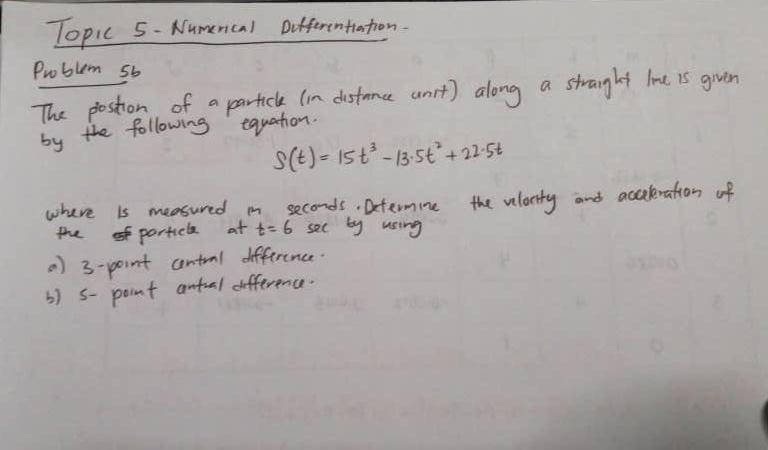 Topic 5 - Numerical Differentiation -
Problem 5b
The position of a particle (in distance unit) along a straight line is given
by the following equation.
S(t) = 15t³ - 13.5t² + 22.5t
where is measured in seconds. Determine the velocity and acceleration of
the particle at t=6 sec by using
a) 3-point central difference.
b) 5-point central difference.